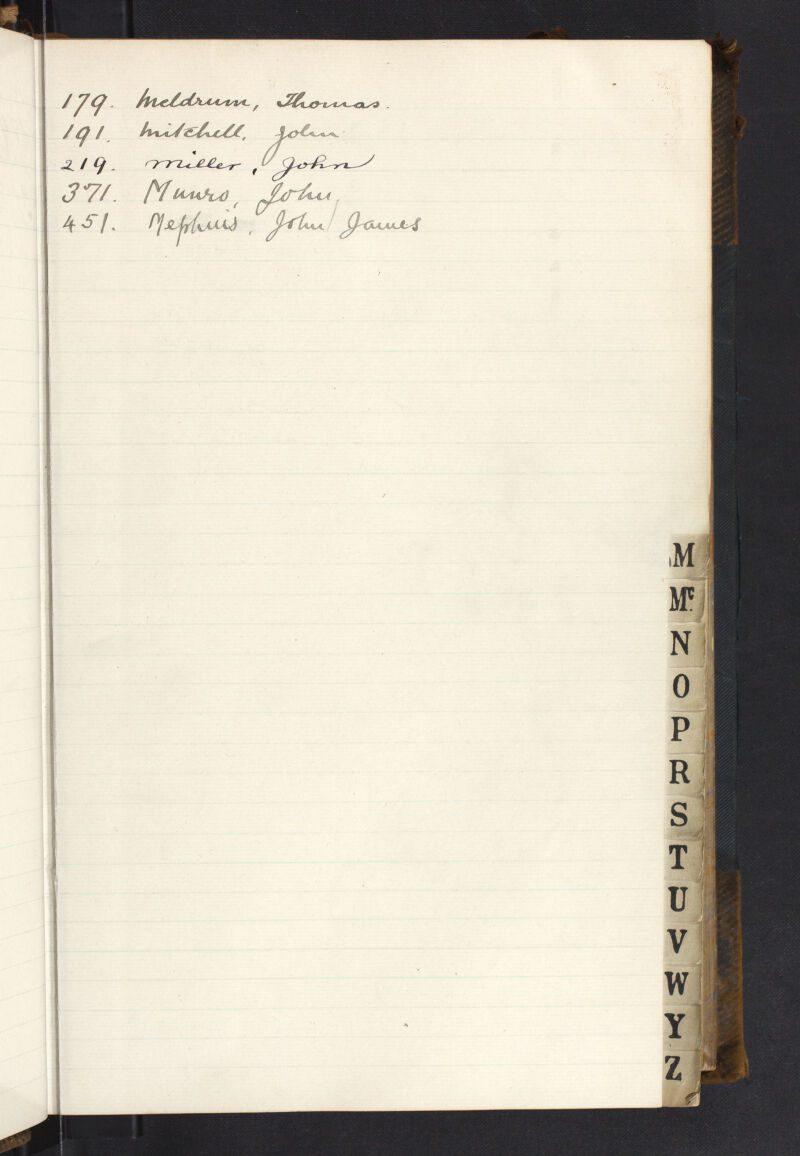 179. Meldrum, Thomas.
191. Mitchell, John
219. Miller, John
371. Munro, John
451. Mephuis, John James
M
Mc.
N
O
P
R
S
T
U
V
W
Y
Z